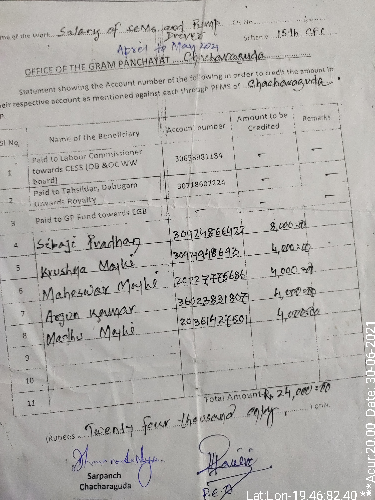 Name of the Work Salary of SEMs and Pump Driver
April to May 2021
Scheme 15th CFC
OFFICE OF THE GRAM PANCHAYAT Chacharaguda
Statement showing the Account number of the following in order to credit the amount in
their respective account as mentioned against each through PFMS of Chacharaguda
Sl No. Name of the Beneficiary Account number Amount to be Credited Remarks
1 Paid to Labour Commissioner towards CESS (OB &OC WW board) 30656981184
2 Paid to Tahsildar, Dabugam towards Royalty
3 Paid to GP Fund towards CGB
4 Sibaji Pradhan 8,000=00
5 Krushna Majhi 4,000=00
6 Maheswar Majhi 4,000=00
7 Arjun Kumar 4,000=00
8 Madhu Majhi 4,000=00
9
10
11
Total Amount Rs 24,000=00
(Rupees Twenty four thousand only
Sarpanch
Chacharaguda
P.E.O
Lat Lon-19.46:82.40
Acur 20.00, Date, 30-06-2021